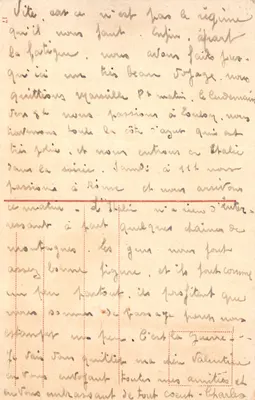 Vite, car ce n'est pas le régime
qu'il nous faut. Enfin, à part
la fatigue, nous avons fait jus-
qu'ici un très beau voyage, nous
quittions Marseille matin, le lendemain
vers 8h nous passions à Toulon, nous
traversons toute la côte d'azur qui est
très jolie, et nous entrons en Italie
dans la soirée. Samedi à 11h nous
passions à Rome et nous arrivons
ce matin. L'Italie n'a rien d'inté-
ressant à part quelques chaînes de
montagnes. Les gens nous font
assez bonne figure, et ils font comme
un peu partout, ils profitent que
nous sommes de passage pour nous
estamper un peu. C'est la guerre - -
Je vais vous quitter ma chère Valentine
en vous envoyant toutes mes amitiés et
en vous embrassant de tout cœur - Charles